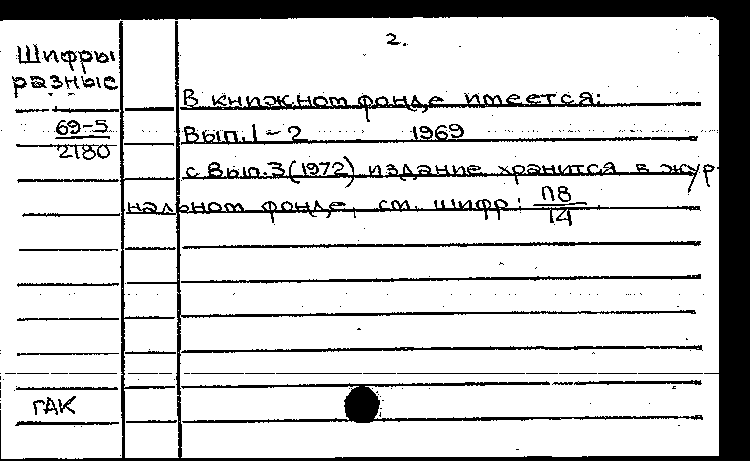 2.
Шифры
разные
В книжном фонде имеется:
69-5
2180
Вып.1-2 1969
с Вып.3(1972) издание хранится в жур-
нальном фонде, см. шифр: П8
14
ГАК